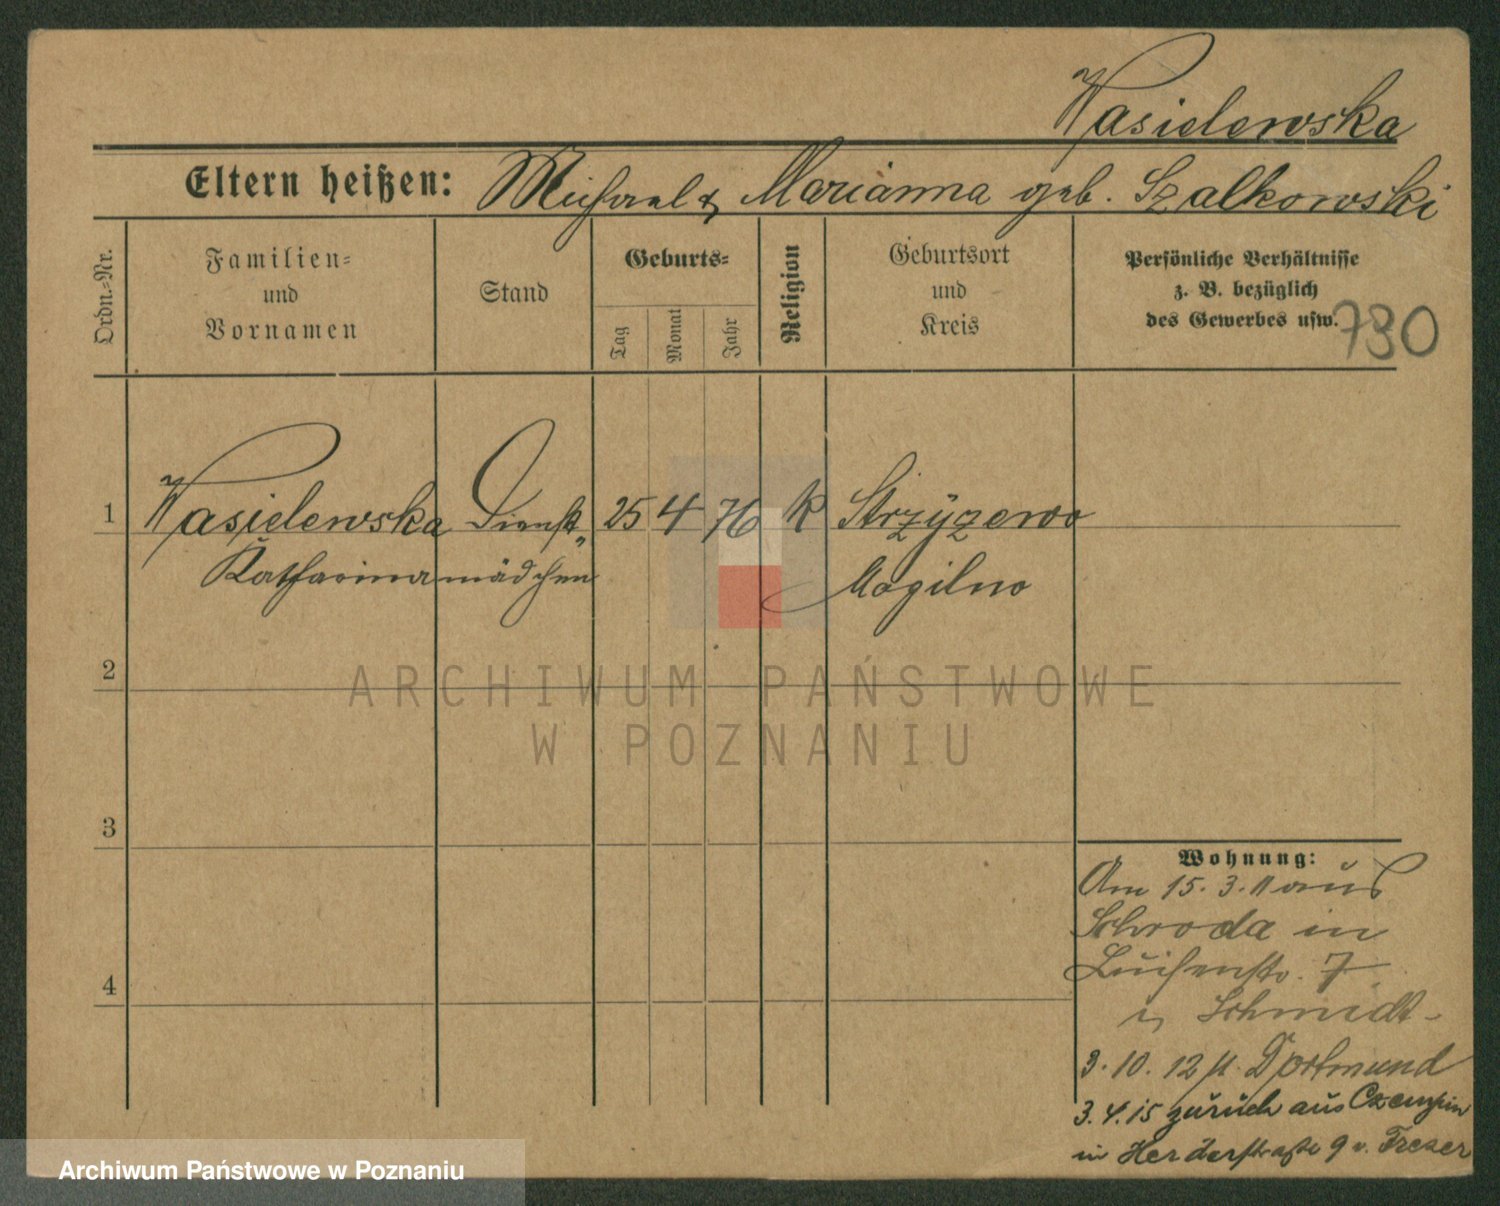 Wasielewska
Eltern heißen: Michael & Marianna geb. Szalkowski
Ordn.-Nr.
Familien-
und
Vornamen
Stand
Geburts-
Tag
Monat
Jahr
Religion
Geburtsort
und
Kreis
Persönliche Verhältnisse
z. B. bezüglich
des Gewerbes usw.
780
1 Wasielewska Dienst 25 4 76 k Strzyzewo
Katharina mädchen Mogilno
2
3
4
Wohnung:
Am 15. 3. 11 aus
Schroda in
Luisenstr. 7
Schmidt
3. 10. 12 Dortmund
3. 4. 15 zurück aus Czempin
in Herderstraße 9 v. Treser
ARCHIWUM PAŃSTWOWE
W POZNANIU
Archiwum Państwowe w Poznaniu